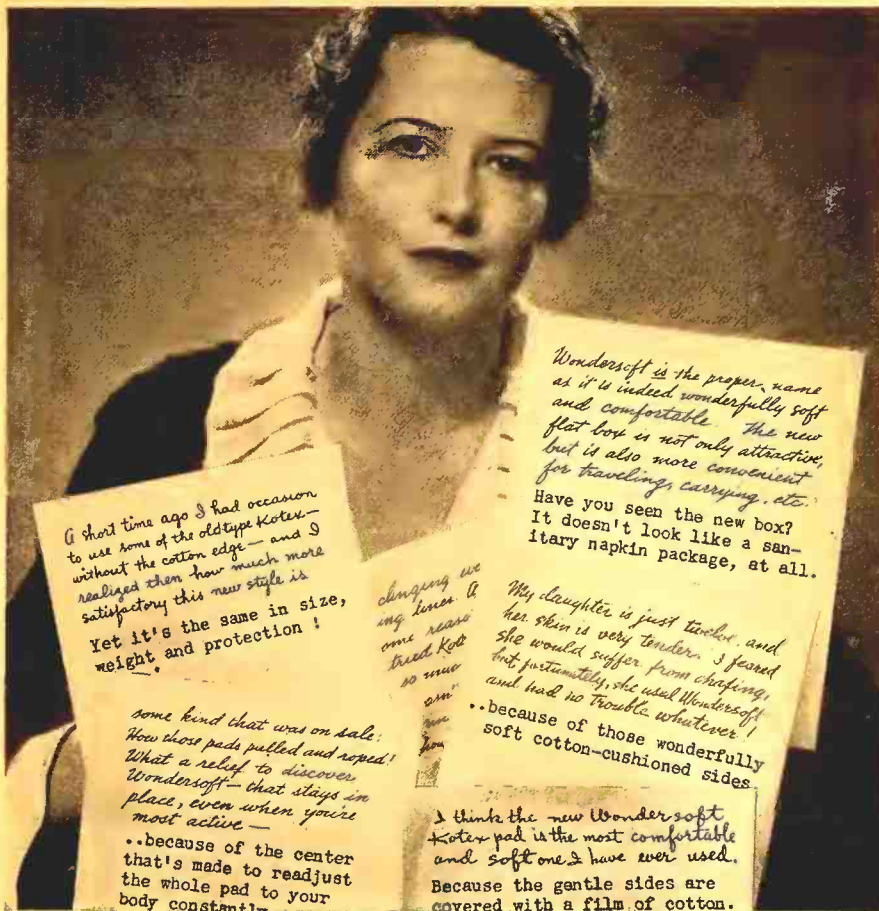 A short time ago I had occasion
to use some of the old type Kotex—
without the cotton edge — and I
realized then how much more
satisfactory this new style is
Yet it's the same in size,
weight and protection !
some kind that was on sale:
How those pads pulled and roped!
What a relief to discover
Wondersoft — that stays in
place, even when you're
most active —
..because of the center
that's made to readjust
the whole pad to your
body constantly
clinging
ing lines. A
ome reaso
tried Kot
so muc
Wondersoft is the proper name
as it is indeed wonderfully soft
and comfortable. The new
flat box is not only attractive,
but is also more convenient
for traveling, carrying, etc.
Have you seen the new box?
It doesn't look like a san-
itary napkin package, at all.
My daughter is just twelve and
her skin is very tender. I feared
she would suffer from chafing,
but, fortunately, she used Wondersoft
and had no trouble whatever!
..because of those wonderfully
soft cotton-cushioned sides
I think the new Wondersoft
Kotex pad is the most comfortable
and soft one I have ever used.
Because the gentle sides are
covered with a film of cotton.